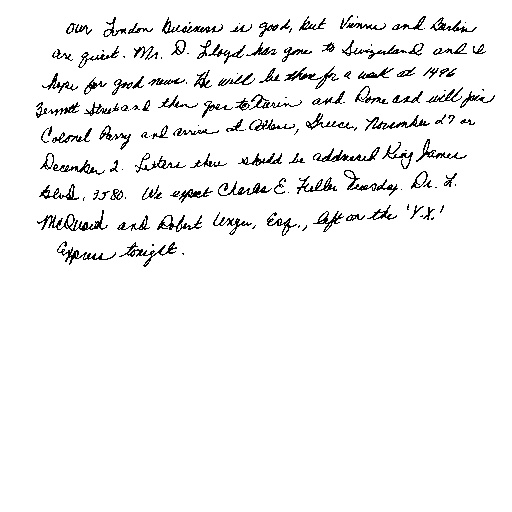 Our London Business is good, but Vienna and Berlin
are quiet. Mr. D. Lloyd has gone to Switzerland and I
hope for good news. He will be there for a week at 1496
Zermott Street and then goes to Turin and Rome and will join
Colonel Parry and arrive at Athens, Greece, November 27 or
December 2. Letters there should be addressed King James
Blvd. 3580. We expect Charles E. Fuller Tuesday. Dr. L.
McQuaid and Robert Unger, Esq., left on the 'Y.X.'
Express tonight.